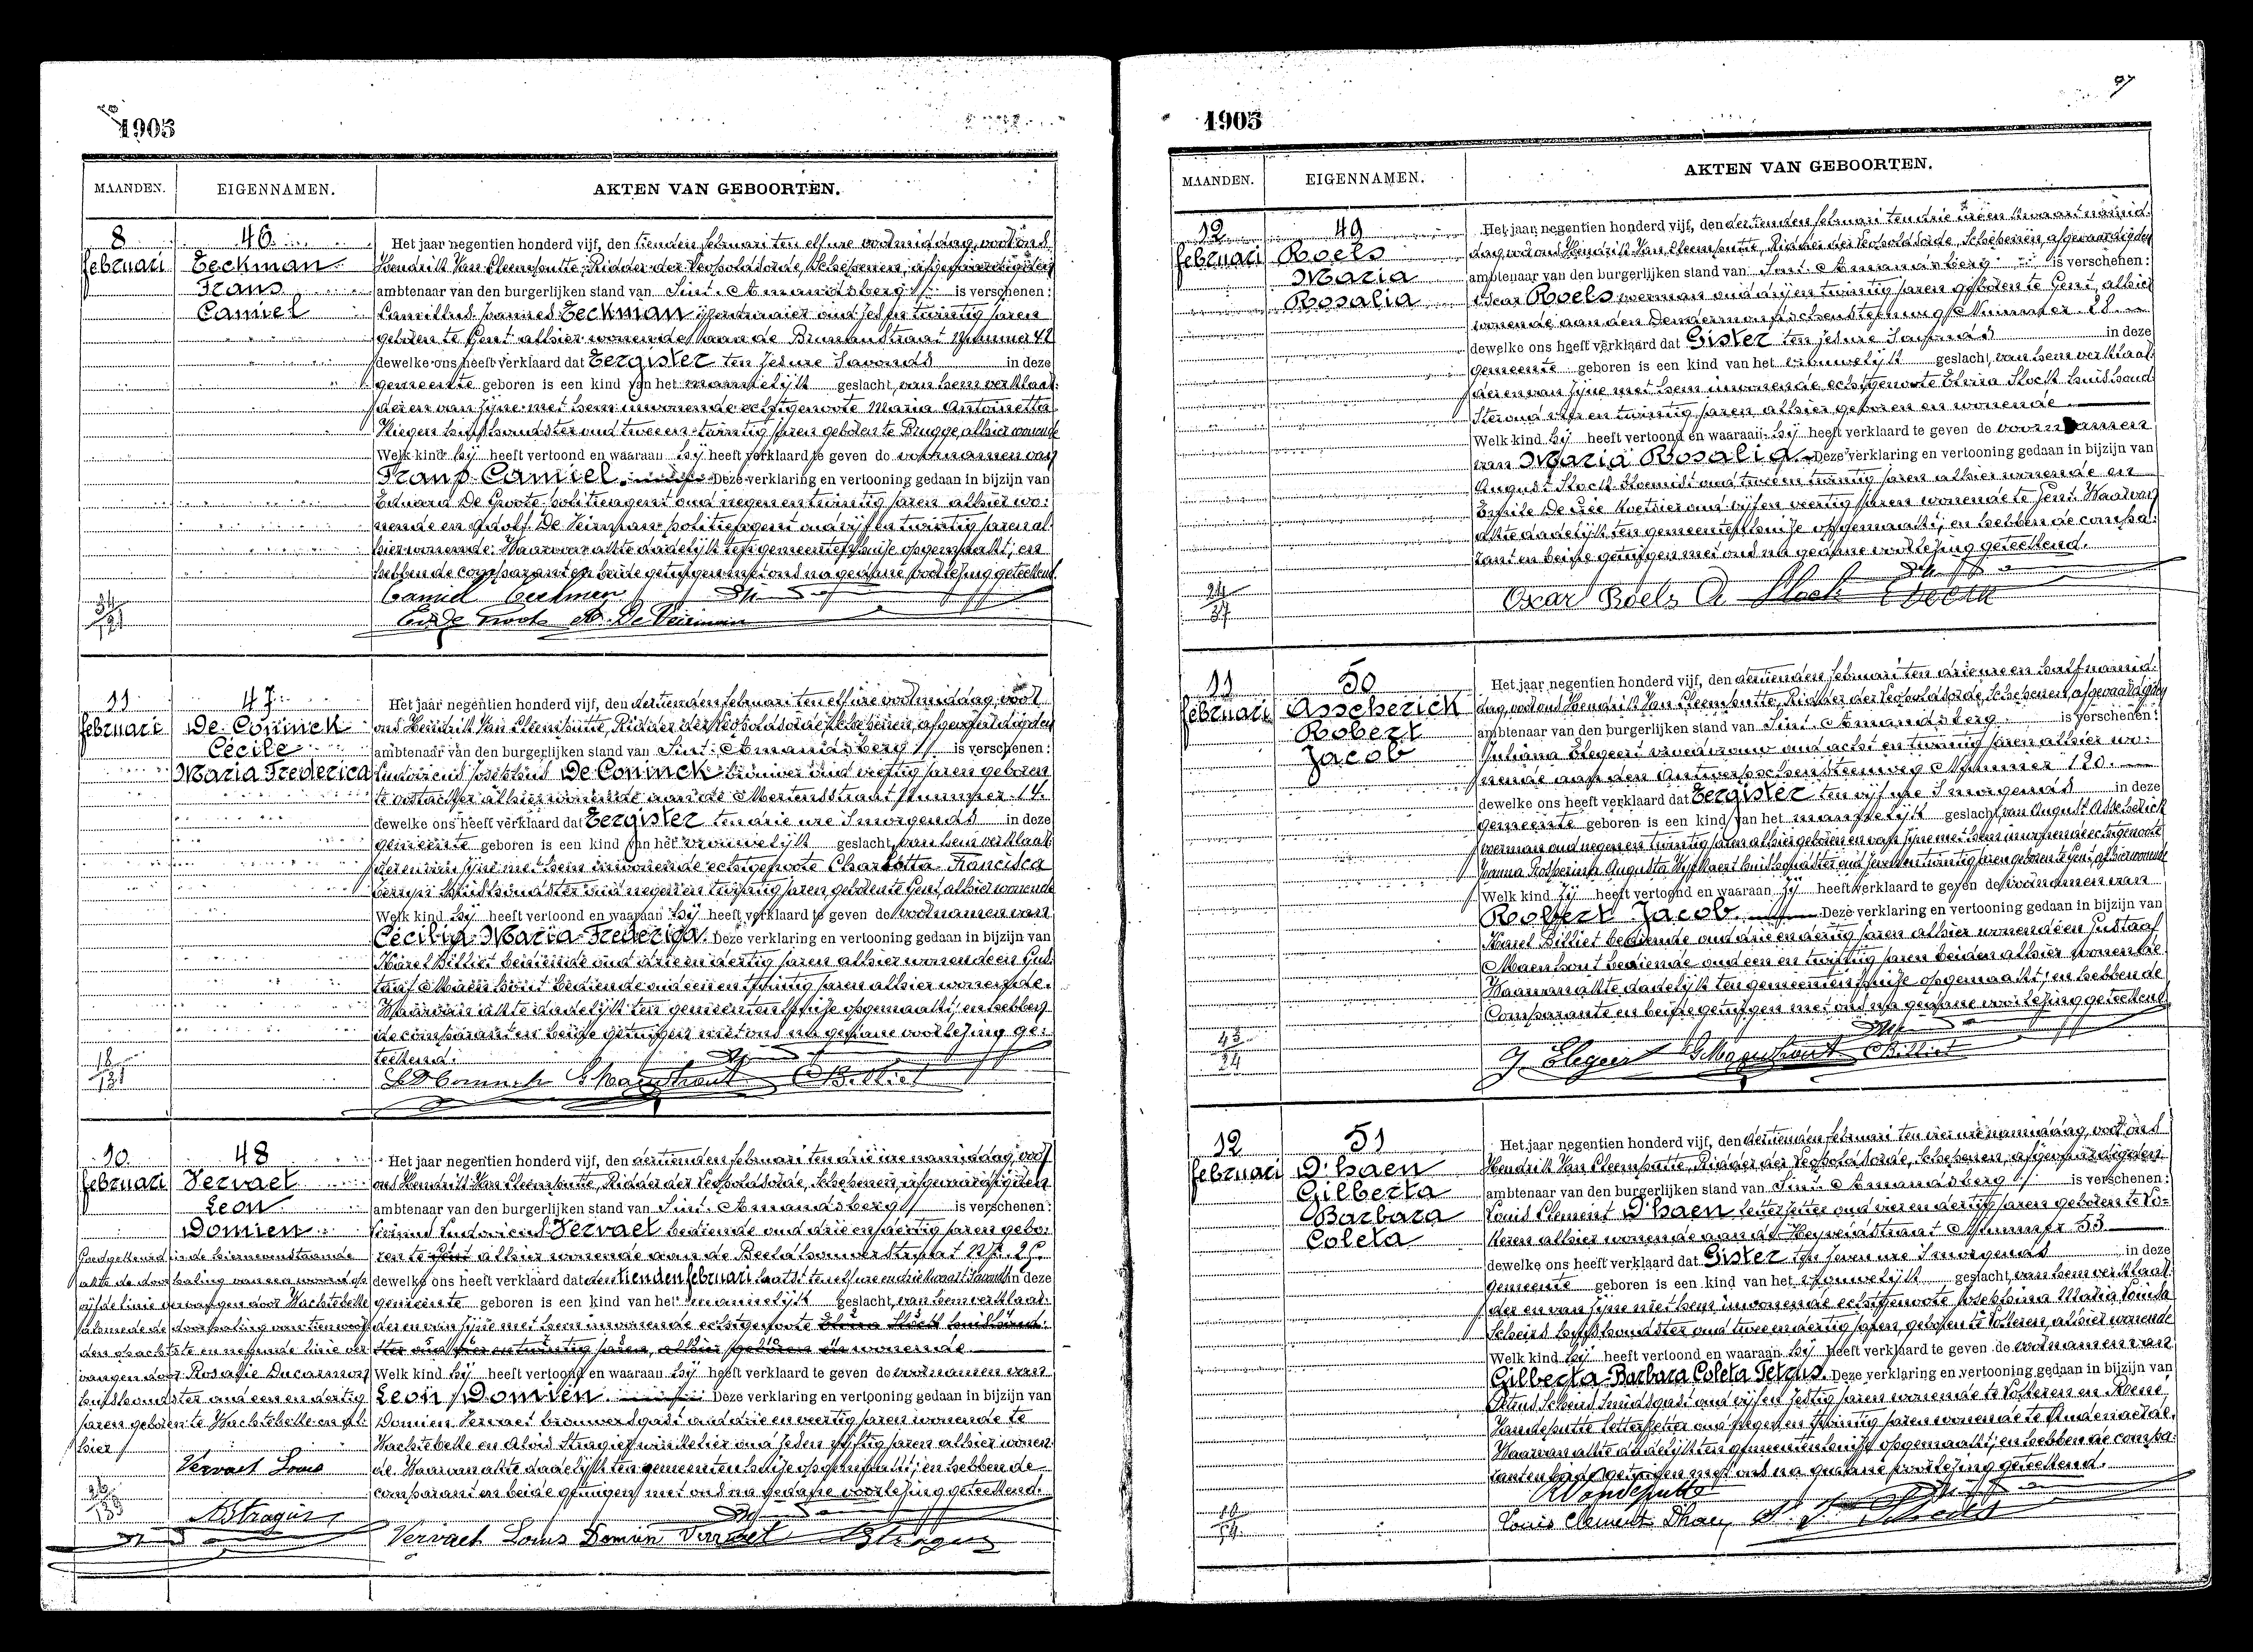 1905
MAANDEN.
EIGENNAMEN.
AKTEN VAN GEBOORTEN.
8
februari
46
Eeckman
Frans
Camiel
Het jaar negentien honderd vijf, den tienden februari ten elf ure voormiddag, voor ons
Hendrik Van Cleemputte, Ridder der Leopoldsorde, Schepenen, afgevaardigden
ambtenaar van den burgerlijken stand van Sint-Amandsberg is verschenen:
Camillus Joannes Eeckman oud zes en twintig jaren
geboren te Gent alhier wonende aan de straat Nummer 48
dewelke ons heeft verklaard dat Eergister ten zes ure 's avonds in deze
gemeente geboren is een kind van het mannelijk geslacht, van hem verklaar-
der en van zijne met hem inwonende echtgenoote Maria Antoinetta
huishoudster oud twee en twintig jaren geboren te Brugge, alhier wonende
Welk kind hij heeft vertoond en waaraan hij heeft verklaard te geven de voornamen van
Frans Camiel. Deze verklaring en vertooning gedaan in bijzijn van
Eduard De Groote politieagent oud negen en twintig jaren alhier wo-
nende en Adolf De Veirman politieagent oud vijf en twintig jaren al-
hier wonende. Waarvan akte dadelijk ten gemeentenhuize opgemaakt; en
hebben de comparant en beide getuigen met ons na gedane voorlezing geteekend.
Camiel Eeckman
Ed De Groote A. De Veirman
11
februari
47
De Coninck
Cécile
Maria Frederica
Het jaar negentien honderd vijf, den dertienden februari ten elf ure voormiddag, voor
ons Hendrik Van Cleemputte, Ridder der Leopoldsorde, Schepenen, afgevaardigden
ambtenaar van den burgerlijken stand van Sint-Amandsberg is verschenen:
Ludovicus Josephus De Coninck oud veertig jaren geboren
te Oostacker alhier wonende aan de Mertensstraat Nummer 14.
dewelke ons heeft verklaard dat Eergister ten drie ure 's morgends in deze
gemeente geboren is een kind van het vrouwelijk geslacht, van hem verklaar-
der en van zijne met hem inwonende echtgenoote Charlotta Francisca
huishoudster oud negen en twintig jaren, geboren te Gent, alhier wonende
Welk kind hij heeft vertoond en waaraan hij heeft verklaard te geven de voornamen van
Cécilia Maria Frederica. Deze verklaring en vertooning gedaan in bijzijn van
Karel Billiet bediende oud drie en dertig jaren alhier wonende en Gus-
taaf Maenhout bediende oud een en twintig jaren alhier wonende.
Waarvan akte dadelijk ten gemeentenhuize opgemaakt; en hebben
de comparant en beide getuigen met ons na gedane voorlezing ge-
teekend.
L De Coninck G Maenhout C Billiet
10
februari
48
Vervaet
Leon
Domien
Het jaar negentien honderd vijf, den dertienden februari ten drie ure namiddag, voor
ons Hendrik Van Cleemputte, Ridder der Leopoldsorde, Schepenen, afgevaardigden
ambtenaar van den burgerlijken stand van Sint-Amandsberg is verschenen:
Ludovicus Vervaet bediende oud drie en dertig jaren gebo-
ren te Gent alhier wonende aan de Beeldhouwerstraat
dewelke ons heeft verklaard dat den tienden februari laatst ten elf ure en drie kwaart 's avonds in deze
gemeente geboren is een kind van het mannelijk geslacht, van hem verklaar-
der en van zijne met hem inwonende echtgenoote Elvira Stock huishoud-
ster oud vier en twintig jaren, alhier geboren en wonende
Welk kind hij heeft vertoond en waaraan hij heeft verklaard te geven de voornamen van
Leon Domien Deze verklaring en vertooning gedaan in bijzijn van
Domien Vervaet brouwersgast oud drie en veertig jaren wonende te
Wachtebeke en Aloïs Stragier winkelier oud zes en vijftig jaren alhier wonen-
de. Waarvan akte dadelijk ten gemeentenhuize opgemaakt; en hebben de
comparant en beide getuigen met ons na gedane voorlezing geteekend.
Goedgekeurd in de hiernevenstaande
akte de doorhaling van een woord op
vijfde linie vervangen door Wachtebeke
alsmede de doorhaling van tien woor-
den op achtste en negende linie ver-
vangen door Rosalie Ducarmon
huishoudster oud een en dertig
jaren geboren te Wachtebeke en al-
hier
Vervaet Louis
Vervaet Louis Domien Vervaet
97
1905
MAANDEN.
EIGENNAMEN.
AKTEN VAN GEBOORTEN.
12
februari
49
Roels
Maria
Rosalia
Het jaar negentien honderd vijf, den dertienden februari ten drie ure en kwaart namid-
dag voor ons Hendrik Van Cleemputte, Ridder der Leopoldsorde, Schepenen, afgevaardigden
ambtenaar van den burgerlijken stand van Sint-Amandsberg is verschenen:
Oscar Roels oud drij en twintig jaren geboren te Gent, alhier
wonende aan den Dendermondschensteenweg Nummer 28.
dewelke ons heeft verklaard dat Gister ten zes ure 's avonds in deze
gemeente geboren is een kind van het vrouwelijk geslacht, van hem verklaar-
der en van zijne met hem inwonende echtgenoote Elvira Stock huishoud-
ster oud vier en twintig jaren alhier geboren en wonende
Welk kind hij heeft vertoond en waaraan hij heeft verklaard te geven de voornamen
van Maria Rosalia. Deze verklaring en vertooning gedaan in bijzijn van
August Stock oud jaren alhier wonende en
Emile De koetsier oud vijf en veertig jaren wonende te Gent. Waarvan
akte dadelijk ten gemeentenhuize opgemaakt; en hebben de compa-
rant en beide getuigen met ons na gedane voorlezing geteekend.
Oscar Roels A Stock
11
februari
50
Asscherick
Robert
Jacob
Het jaar negentien honderd vijf, den dertienden februari ten drie ure en half namid-
dag, voor ons Hendrik Van Cleemputte, Ridder der Leopoldsorde, Schepenen, afgevaardigden
ambtenaar van den burgerlijken stand van Sint-Amandsberg is verschenen:
Juliana Elegeert vroedvrouw oud acht en twintig jaren alhier wo-
nende aan den Antwerpschensteenweg Nummer 120.
dewelke ons heeft verklaard dat Eergister ten vijf ure 's morgends in deze
gemeente geboren is een kind van het mannelijk geslacht, van August Asscherick
oud negen en twintig jaren alhier geboren en van zijne met hem inwonende echtgenoote
Joanna Augusta huishoudster oud zeven en twintig jaren geboren te Gent, alhier wonende
Welk kind zij heeft vertoond en waaraan zij heeft verklaard te geven de voornamen van
Robert Jacob. Deze verklaring en vertooning gedaan in bijzijn van
Karel Billiet bediende oud drie en dertig jaren alhier wonende en Gustaaf
Maenhout bediende oud een en twintig jaren beiden alhier wonende.
Waarvan akte dadelijk ten gemeentenhuize opgemaakt; en hebben de
Comparante en beide getuigen met ons na gedane voorlezing geteekend.
J. Elegeert G Maenhout C Billiet
12
februari
51
D'haen
Gilberta
Barbara
Coleta
Het jaar negentien honderd vijf, den dertienden februari ten vier ure namiddag, voor ons
Hendrik Van Cleemputte, Ridder der Leopoldsorde, Schepenen, afgevaardigden
ambtenaar van den burgerlijken stand van Sint-Amandsberg is verschenen:
Louis Clement D'haen letterzetter oud vier en dertig jaren geboren te Lo-
keren alhier wonende aan de Heyveldstraat Nummer 53
dewelke ons heeft verklaard dat Gister ten zeven ure 's morgends in deze
gemeente geboren is een kind van het vrouwelijk geslacht, van hem verklaar-
der en van zijne met hem inwonende echtgenoote Josephina Maria Louisa
huishoudster oud twee en dertig jaren, geboren te Lokeren, alhier wonende
Welk kind hij heeft vertoond en waaraan hij heeft verklaard te geven de voornamen van
Gilberta-Barbara Coleta Petrus. Deze verklaring en vertooning gedaan in bijzijn van
Petrus smidsgast oud vijf en zestig jaren wonende te Lokeren en René
Vandeputte letterzetter oud negen en twintig jaren wonende te Audenaerde.
Waarvan akte dadelijk ten gemeentenhuize opgemaakt; en hebben de compa-
rant en beide getuigen met ons na gedane voorlezing geteekend.
R Vandeputte
Louis Clement Dhaen